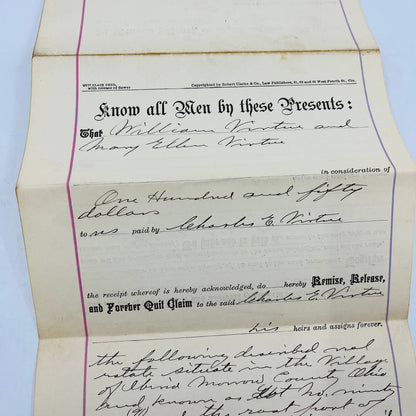 QUIT-CLAIM DEED,
with release of dower
Copyrighted by Robert Clarke & Co., Law Publishers, 61, 63 and 65 West Fourth St., Cin.
Know all Men by these Presents:
That William Virtue and
Mary Ellen Virtue
in consideration of
One Hundred and fifty
dollars
to us paid by Charles E. Virtue
the receipt whereof is hereby acknowledged, do hereby Remise, Release,
and Forever Quit Claim to the said Charles E. Virtue
his heirs and assigns forever.
the following described real
estate situate in the Village
of Morrow County Ohio
and known as Lot No. nine
(9) the east part of